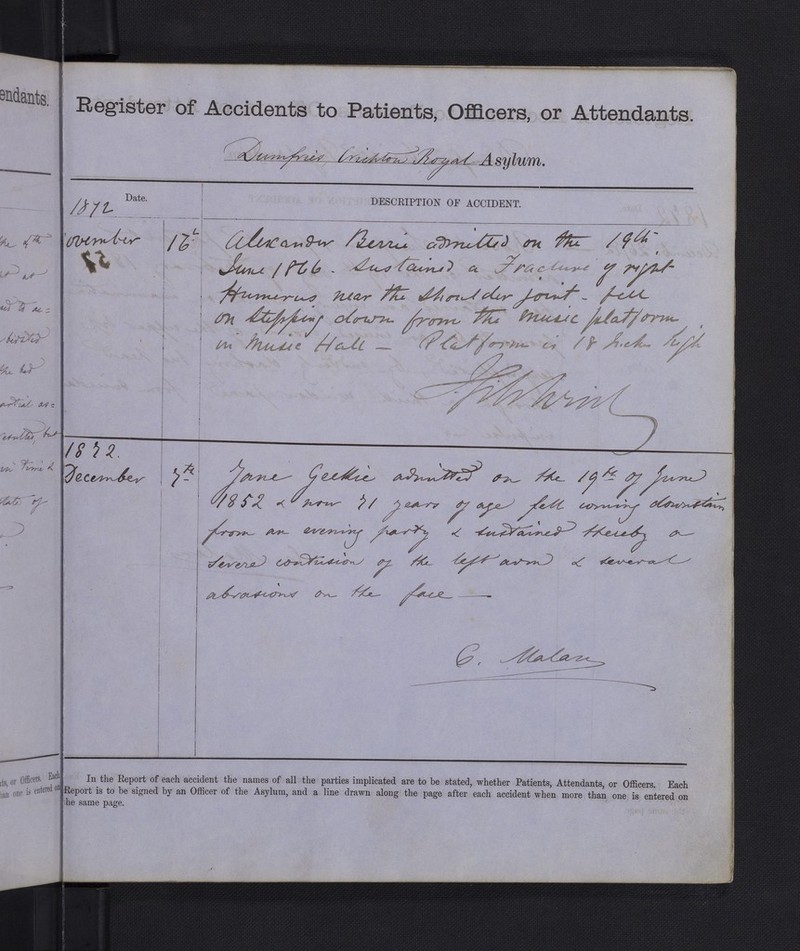 endants.
Register of Accidents to Patients, Officers, or Attendants.
Dumfries, Crichton Royal Asylum.
Date.
DESCRIPTION OF ACCIDENT.
1872
ovember
Alexander Berrie admitted on the 19th
June 1866. Sustained a Fracture of right
Humerus near the shoulder joint - fell
on stepping down from the music platform
in Music Hall — Platform is 18 inches high
1872.
December 7th Jane Geekie admitted on the 19th of June
1852 & now 71 years of age fell coming downstairs
from an evening party & sustained thereby a
severe contusion of the left arm & several
abrasions on the face —
C. Malan
In the Report of each accident the names of all the parties implicated are to be stated, whether Patients, Attendants, or Officers. Each
Report is to be signed by an Officer of the Asylum, and a line drawn along the page after each accident when more than one is entered on
he same page.